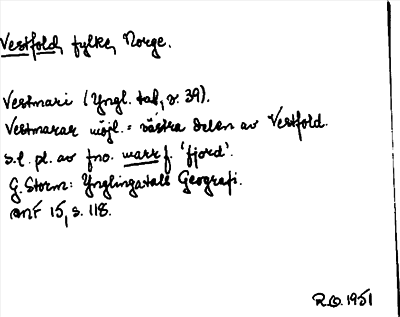 Vestfold, fylke, Norge.
Vestmari (Yngl. tal, s. 39).
Vestmarar möjl. = västra delen av Vestfold.
s.l. pl. av fno. marr f. 'fjord'.
G. Storm: Ynglingatals Geografi.
ANF 15, s. 118.
R.O. 1951